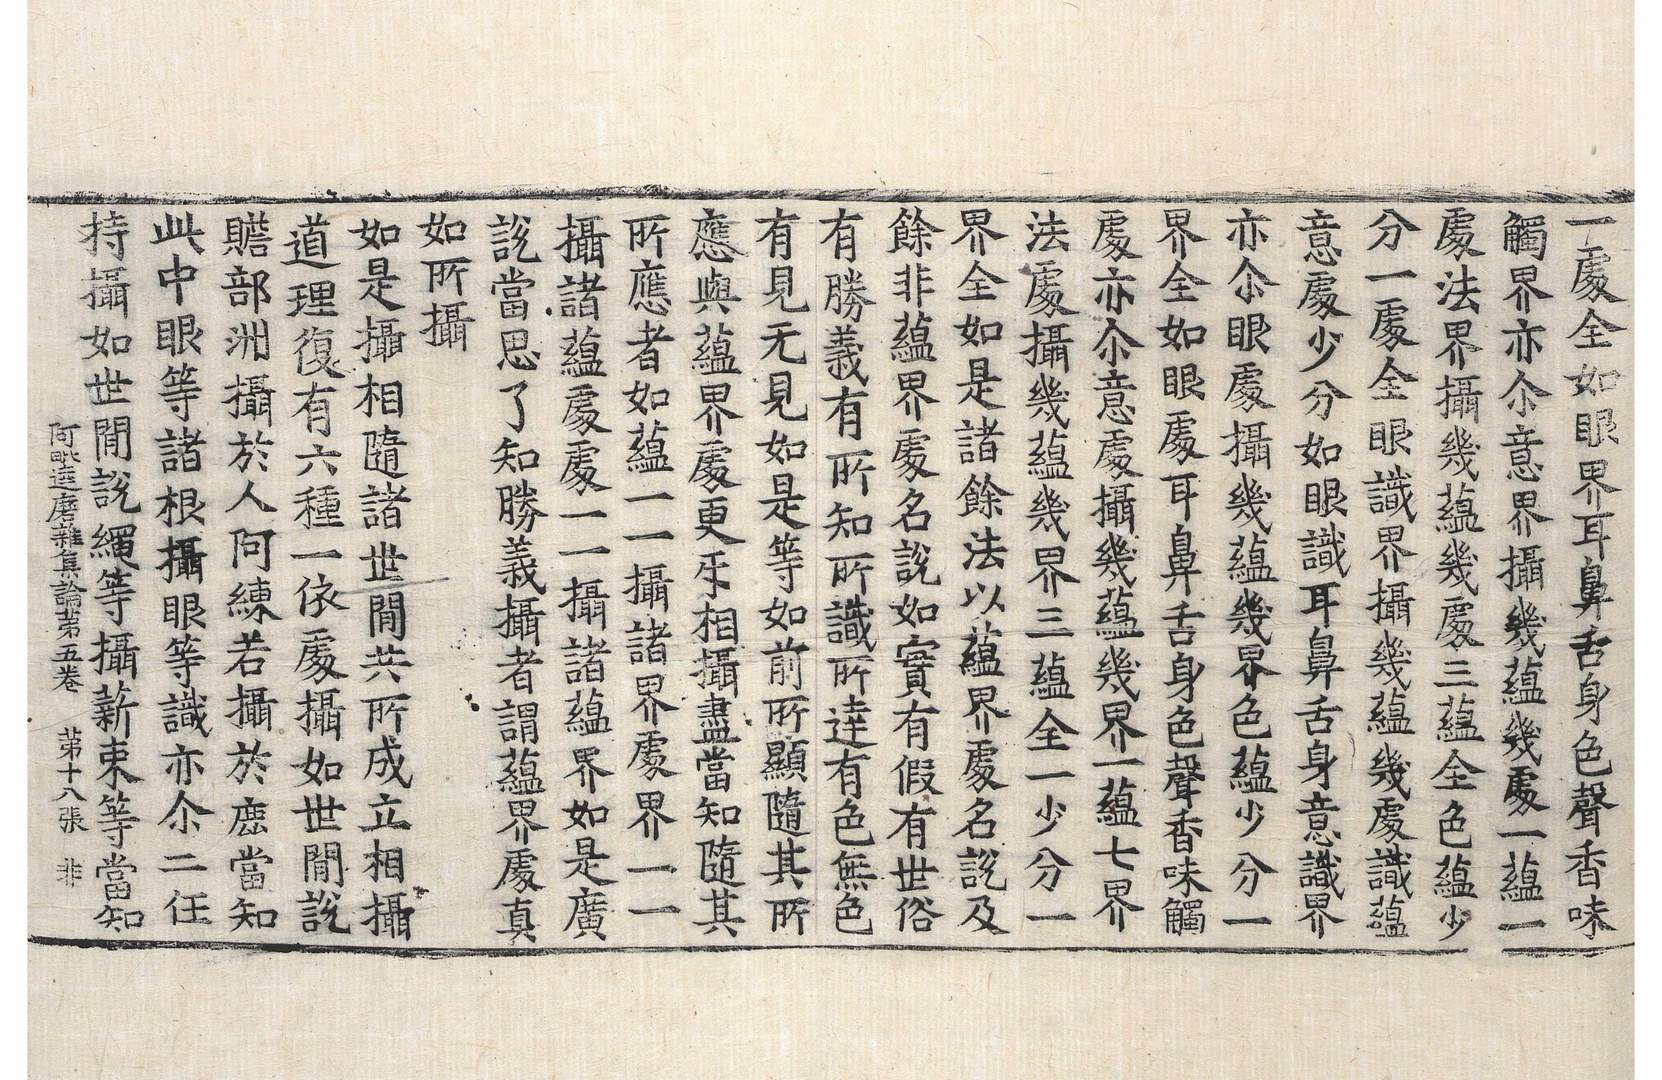 一處全如眼界耳鼻舌身色聲香味
觸界亦尒意界攝幾蘊幾處一蘊一
處法界攝幾蘊幾處三蘊全色蘊少
分一處全眼識界攝幾蘊幾處識蘊
意處少分如眼識耳鼻舌身意識界
亦尒眼處攝幾蘊幾界色蘊少分一
界全如眼處耳鼻舌身色聲香味觸
處亦尒意處攝幾蘊幾界一蘊七界
法處攝幾蘊幾界三蘊全一少分一
界全如是諸餘法以蘊界處名說及
餘非蘊界處名說如實有假有世俗
有勝義有所知所識所達有色無色
有見无見如是等如前所顯隨其所
應與蘊界處更㸦相攝盡當知隨其
所應者如蘊一一攝諸界處界一一
攝諸蘊處處一一攝諸蘊界如是廣
說當思了知勝義攝者謂蘊界處真
如所攝
如是攝相隨諸世間共所成立相攝
道理復有六種一依處攝如世間說
贍部洲攝於人阿練若攝於鹿當知
此中眼等諸根攝眼等識亦尒二任
持攝如世間說繩等攝薪束等當知
阿毗達磨雜集論第五卷 第十八張 非